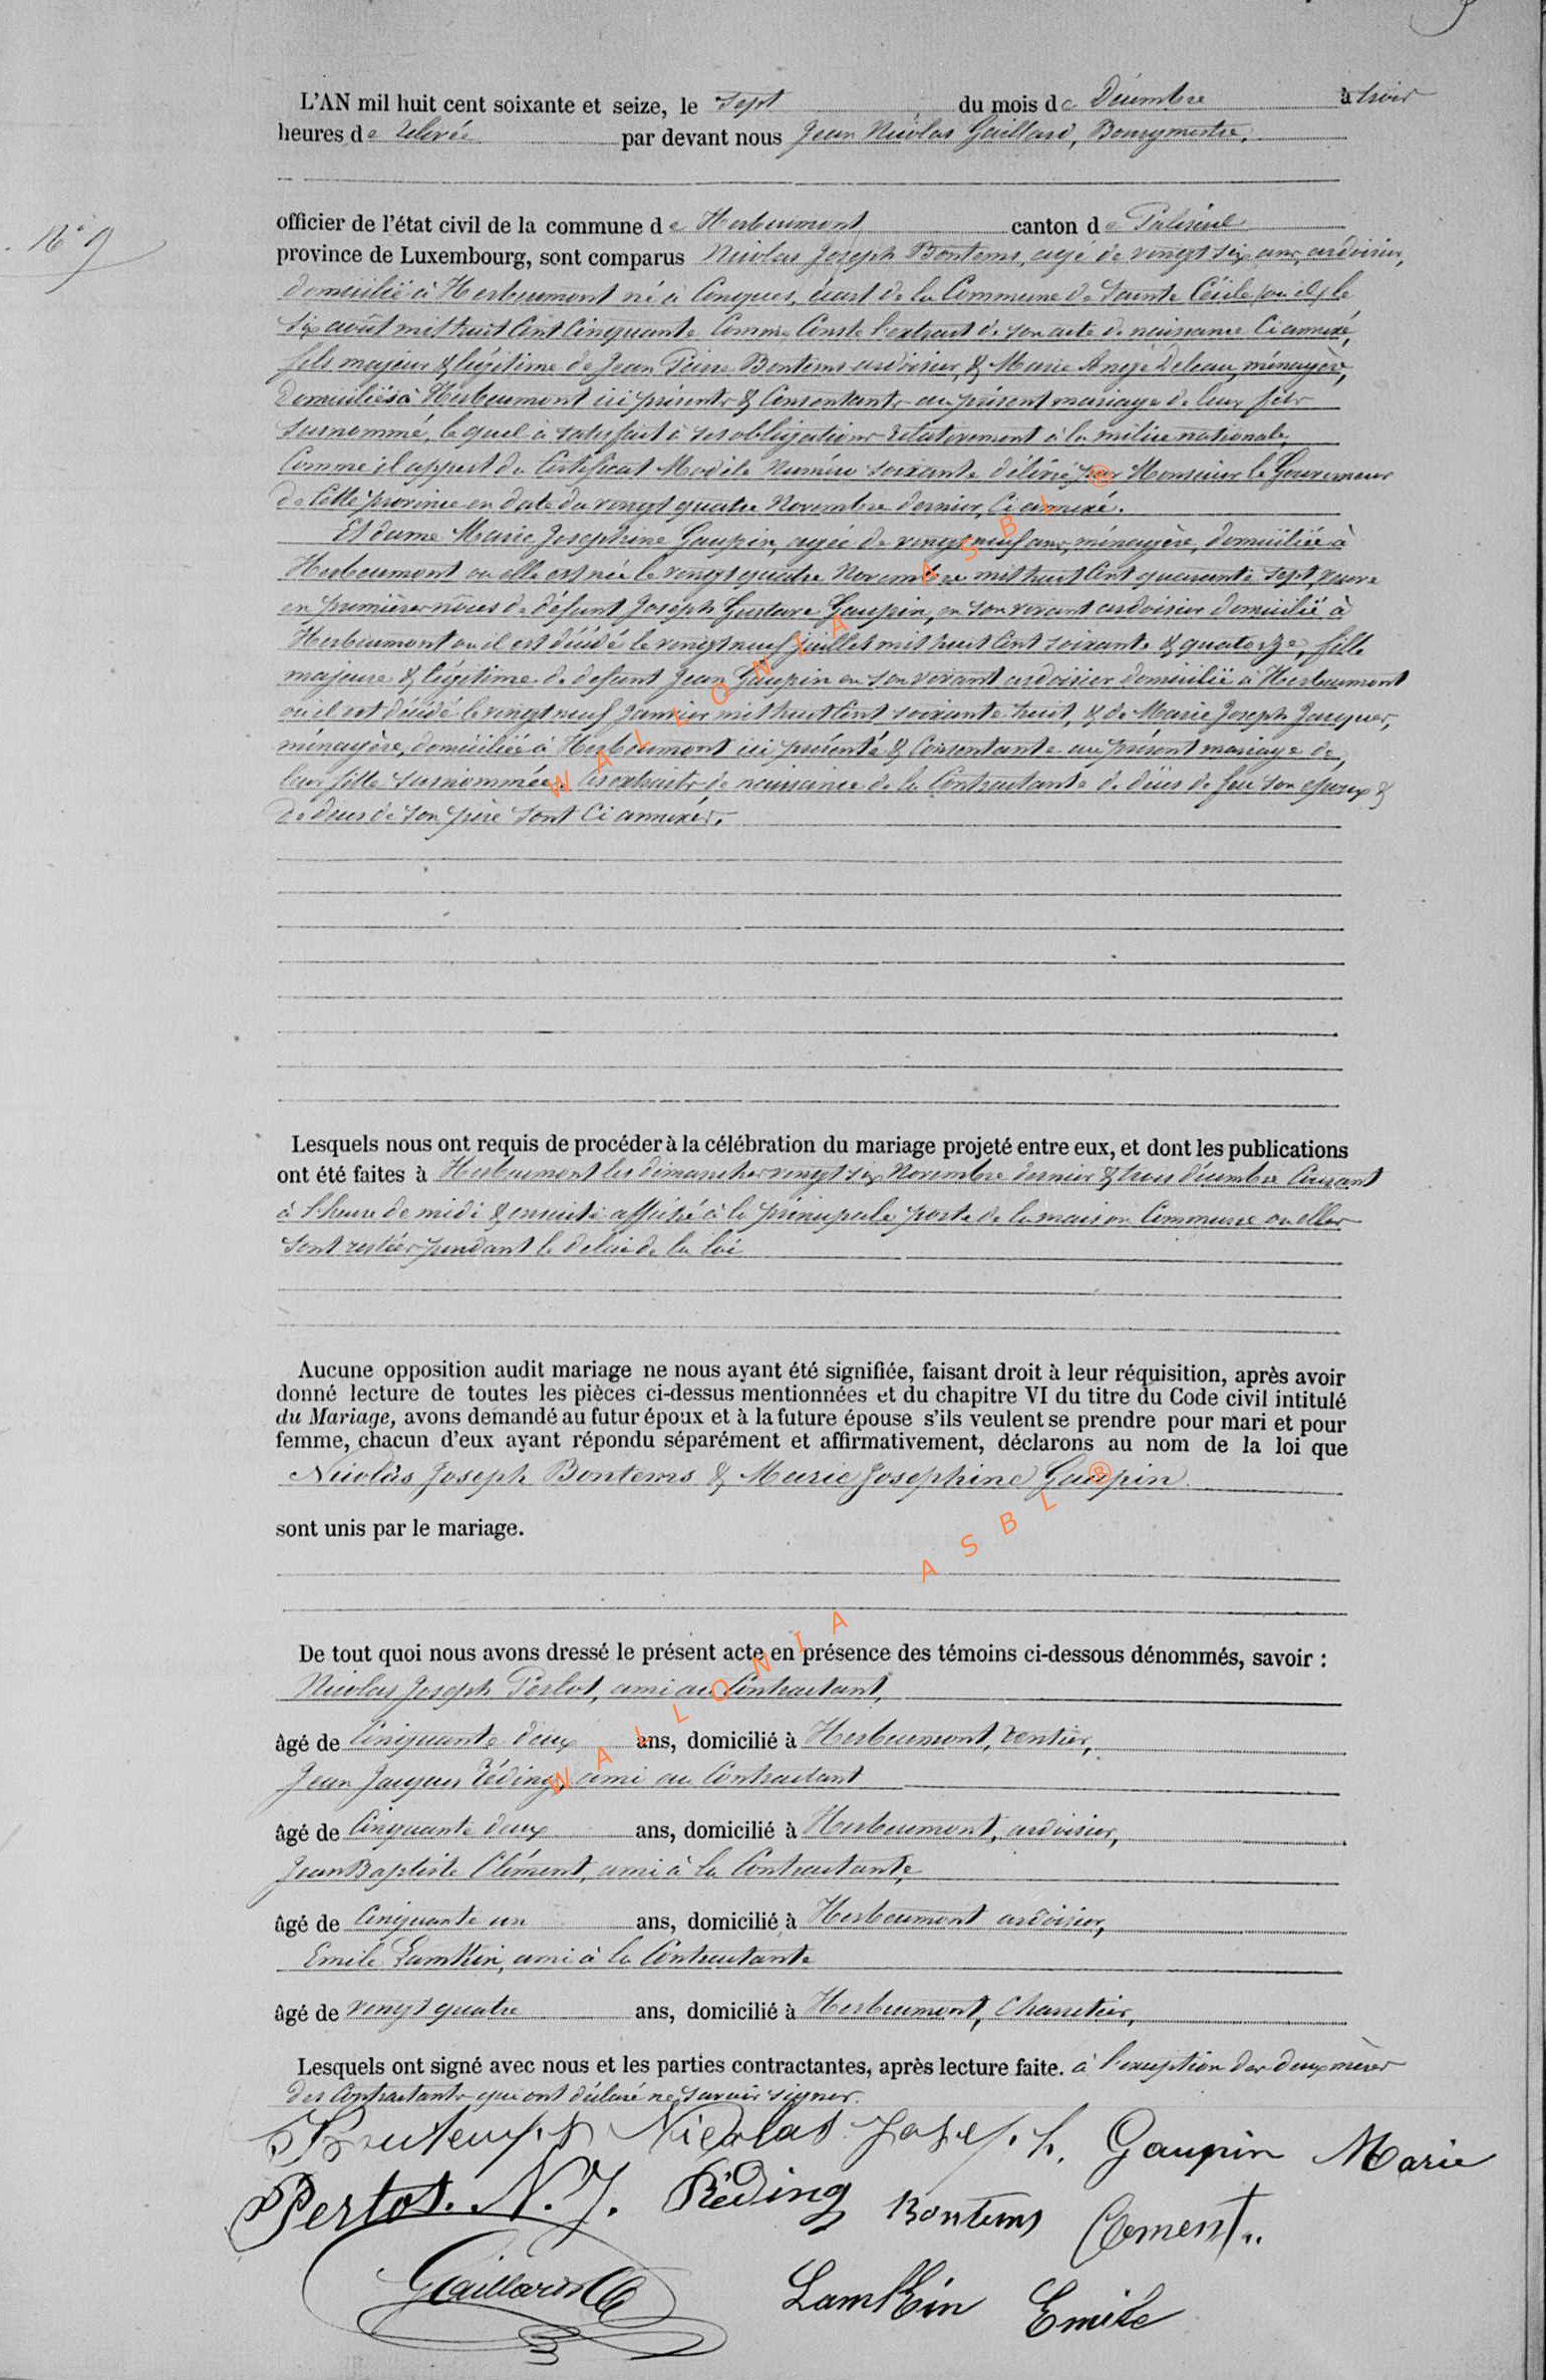 L'AN mil huit cent soixante et seize, le sept du mois de Décembre à trois
heures de relevée par devant nous Jean Nicolas Gaillard, Bourgmestre,
officier de l'état civil de la commune de Herbeumont canton de Paliseul
N° 9
province de Luxembourg, sont comparus Nicolas Joseph Bontems, agé de vingt six ans, ardoisier,
domicilié à Herbeumont né à Conques, écart de la Commune de Sainte Cécile le
six août mil huit Cent Cinquante Comme Conste l'extrait de son acte de naissance Ci annexé,
fils majeur & légitime de Jean Pierre Bontems ardoisier, & Marie Ange Deleau, ménagère,
Domiciliés à Herbeumont ici présents & Consentants au présent mariage de leur fils
surnommé, lequel à satisfait à ses obligations relativement à la milice nationale,
Comme il appert du Certificat Modèle Numéro soixante délivré par Monsieur le Gouverneur
de Cette province en date du vingt quatre Novembre dernier, Ci annexé.
Et dame Marie Josephine Gaupin, agée de vingt neuf ans, ménagère, domiciliée à
Herbeumont ou elle est née le vingt quatre Novembre mil huit Cent quarante sept, veuve
en premières nôces de défunt Joseph Gustave Gaupin, en son vivant ardoisier domicilié à
Herbeumont ou il est décédé le vingt neuf juillet mil huit Cent soixante & quatorze, fille
majeure & légitime de defunt Jean Gaupin en son vivant ardoisier domicilié à Herbeumont
ou il est decédé le vingt neuf Janvier mil huit Cent soixante huit, & de Marie Joseph Jacques,
ménagère, domiciliée à Herbeumont ici présente & Consentante au présent mariage de
leur fille surnommée. Les extraits de naissance de la Contractante de décès de feu son epoux &
de decès de son père sont Ci annexés.
Lesquels nous ont requis de procéder à la célébration du mariage projeté entre eux, et dont les publications
ont été faites à Herbeumont les dimanches vingt six Novembre dernier & trois décembre Courant
à l'heure de midi & ensuite affiché à la principale porte de la maison Commune ou elles
sont restées pendant le delai de la loi
Aucune opposition audit mariage ne nous ayant été signifiée, faisant droit à leur réquisition, après avoir
donné lecture de toutes les pièces ci-dessus mentionnées et du chapitre VI du titre du Code civil intitulé
du Mariage, avons demandé au futur époux et à la future épouse s'ils veulent se prendre pour mari et pour
femme, chacun d'eux ayant répondu séparément et affirmativement, déclarons au nom de la loi que
Nicolas Joseph Bontems & Marie Josephine Gaupin
sont unis par le mariage.
De tout quoi nous avons dressé le présent acte en présence des témoins ci-dessous dénommés, savoir :
Nicolas Joseph Perlot, ami au Contractant,
âgé de Cinquante deux ans, domicilié à Herbeumont, rentier,
Jean Jacques Réding, ami au Contractant
âgé de Cinquante deux ans, domicilié à Herbeumont, ardoisier,
Jean Baptiste Clément, ami à la Contractante,
âgé de Cinquante un ans, domicilié à Herbeumont ardoisier,
Emile Lamkin, ami à la Contractante
âgé de vingt quatre ans, domicilié à Herbeumont, Charretier,
Lesquels ont signé avec nous et les parties contractantes, après lecture faite. à l'exception des deux mères
des Contractants qui ont déclaré ne savoir signer.
Bontemps Nicolas Joseph. Gaupin Marie
Perlot. N. J. Réding Bontems Clement
Gaillard Lamkin Emile
WALLONIA ASBL ®
WALLONIA ASBL ®